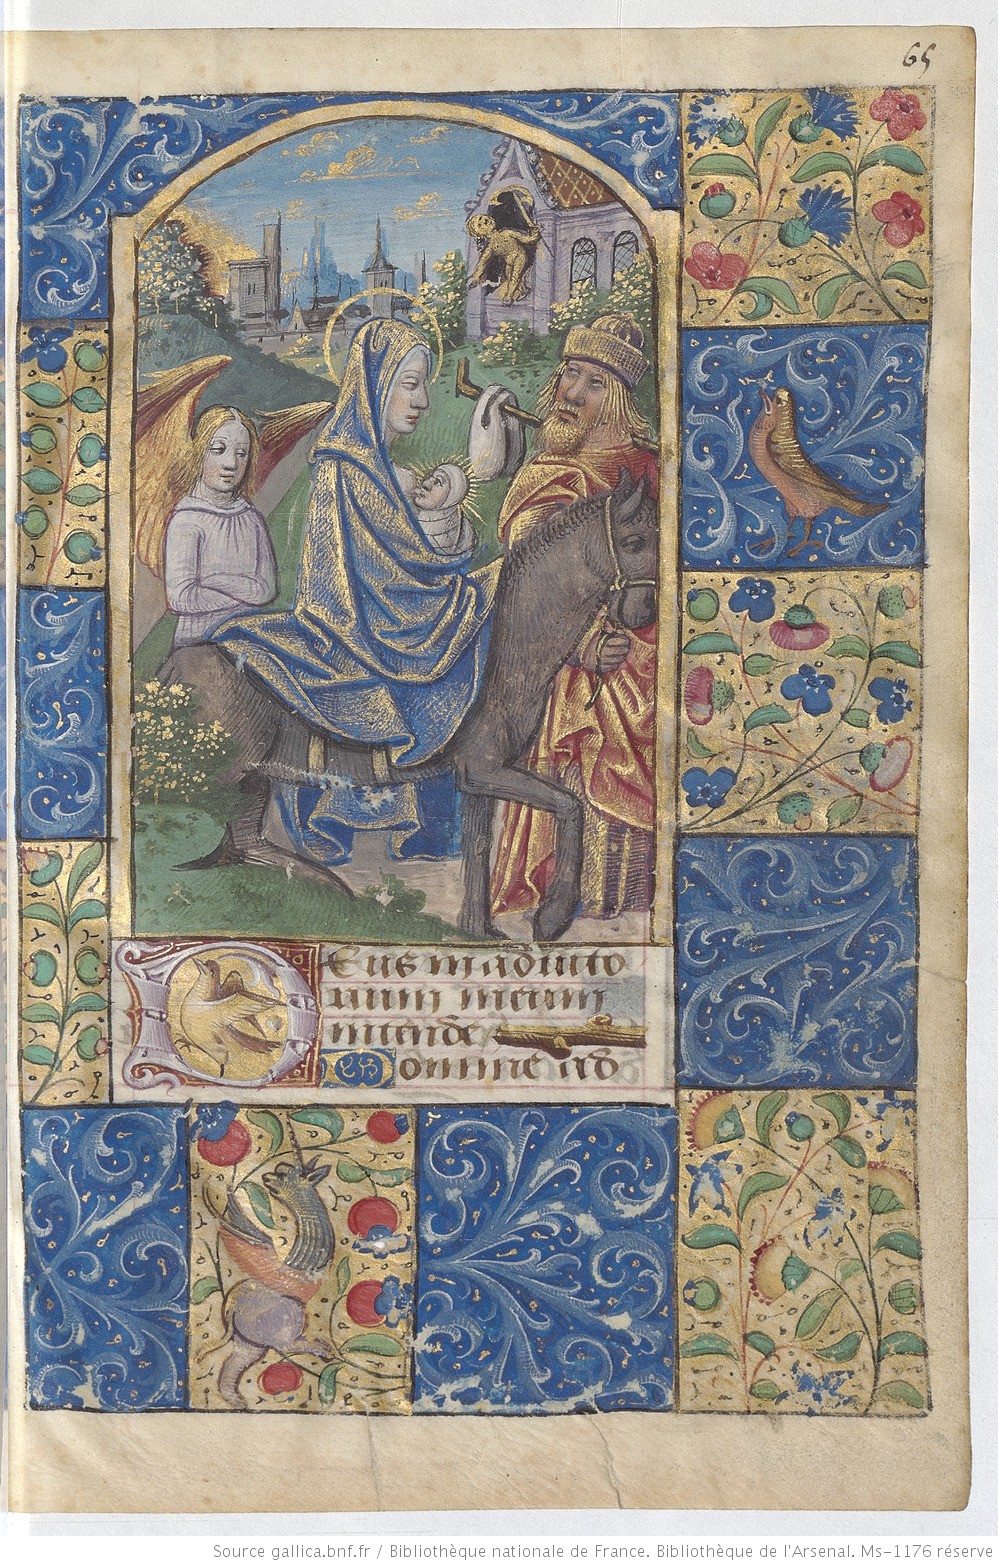 65
Deus in adiuto
rium meum
intende
Domine ad
Source gallica.bnf.fr / Bibliothèque nationale de France. Bibliothèque de l'Arsenal. Ms-1176 réserve